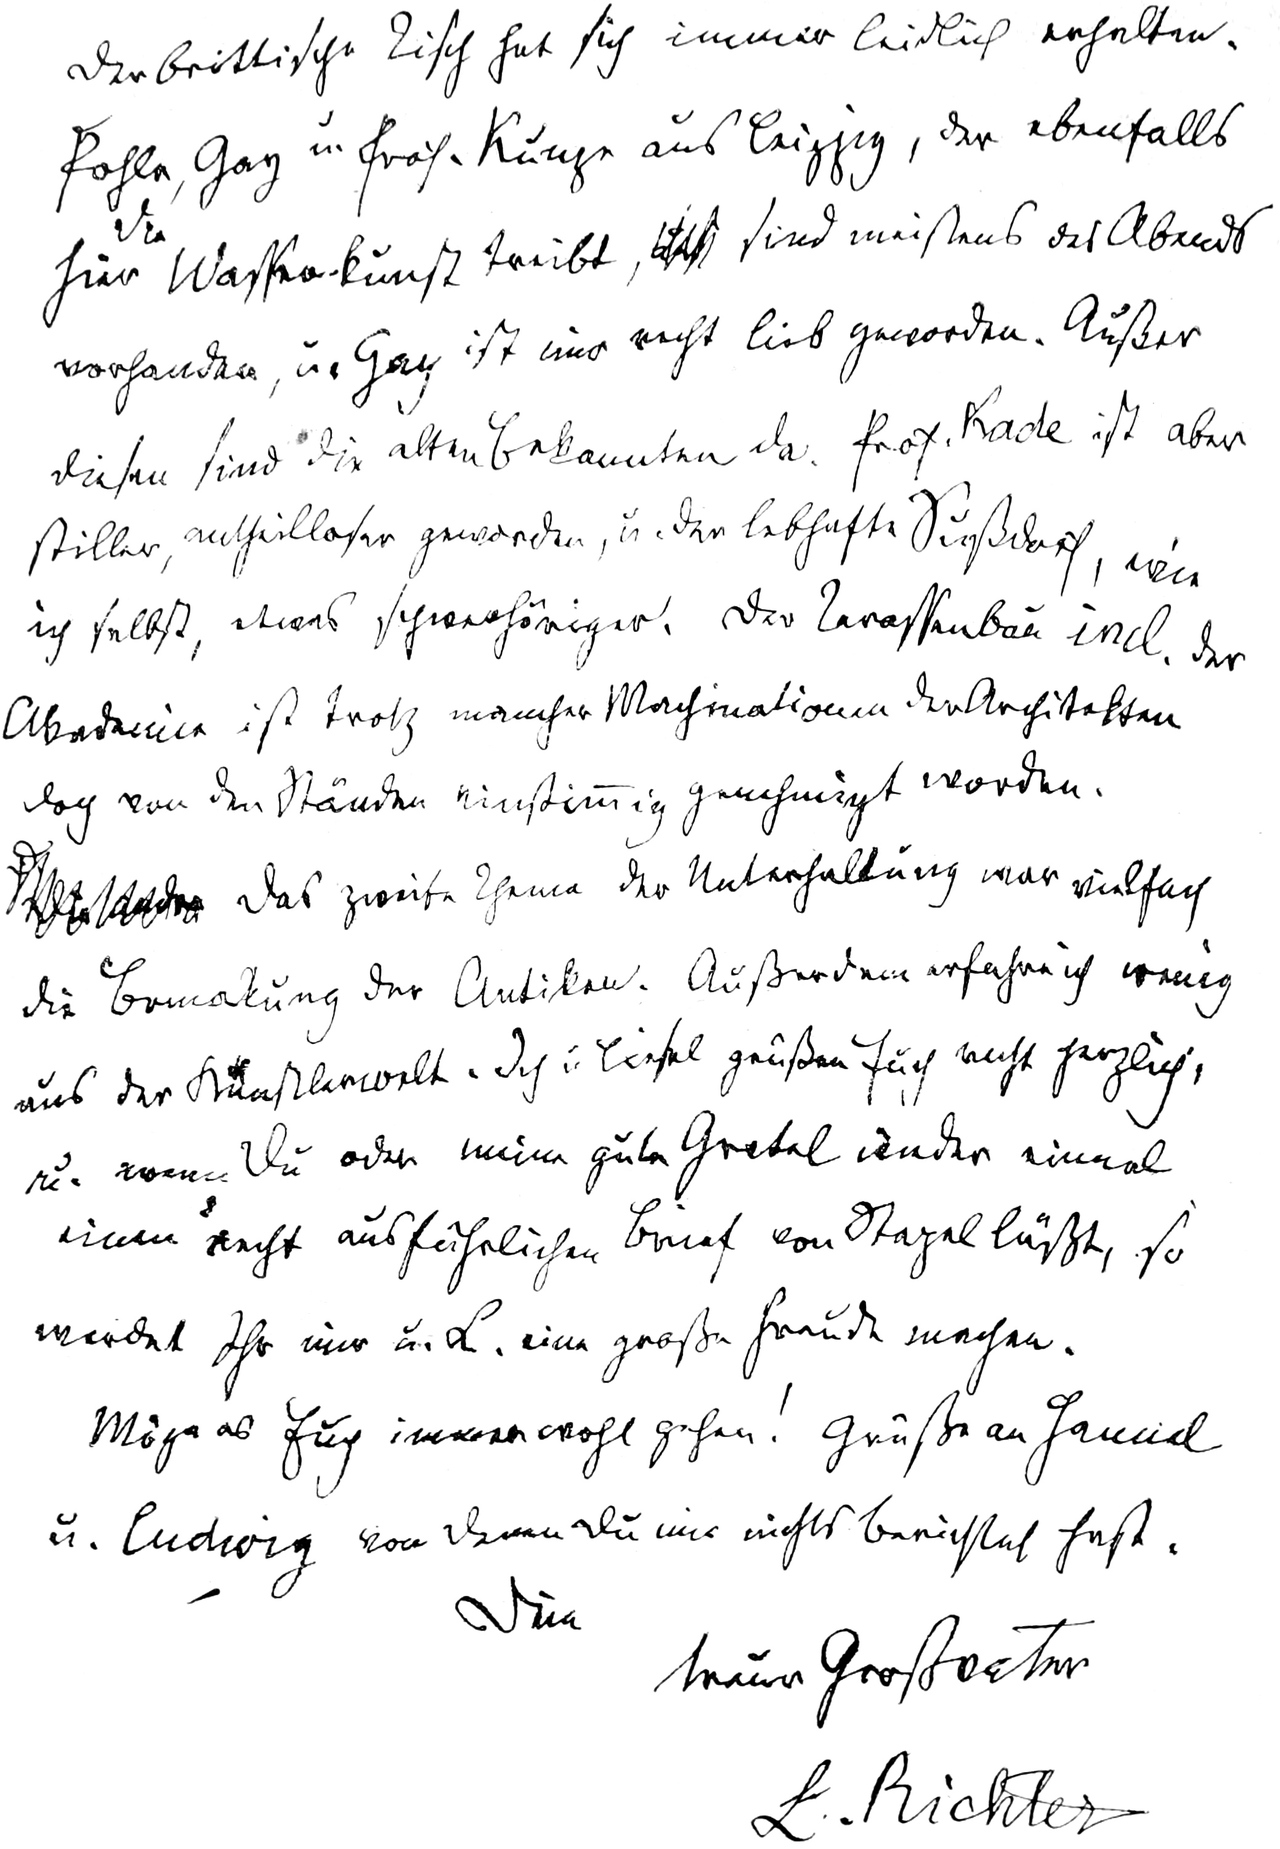 Der brittische Tisch hat sich immer leidlich erhalten.
Pohle, Gay u. Prof. Kunze aus Leipzig, der ebenfalls
die
hier Wasserkunst treibt, sind meistens des Abends
vorhanden, u. Gay ist mir recht lieb geworden. Außer
diesen sind die alten Bekannten da. Prof. Kade ist aber
stiller, antheilloser geworden, u. der lebhafte Sußdorf, wie
ich selbst, etwas schwerhöriger. Der Terassenbau incl. der
Akademie ist trotz mancher Machinationen der Architekten
doch von den Ständen einstim̅ig genehmigt worden.
Das zweite Thema der Unterhaltung war vielfach
die Bemalung der Antiken. Außerdem erfahre ich wenig
aus der Künstlerwelt. Ich u. Liesel grüßen Euch recht herzlich,
u. wenn Du oder meine gute Gretel wieder einmal
einen recht ausführlichen Brief von Stapel läßt, so
werdet Ihr mir u. L. eine große Freude machen.
Möge es Euch immer wohl gehen! Grüße an
u. Ludwig von denen Du mir nichts berichtet hast.
Dein
treuer Großvater
L. Richter